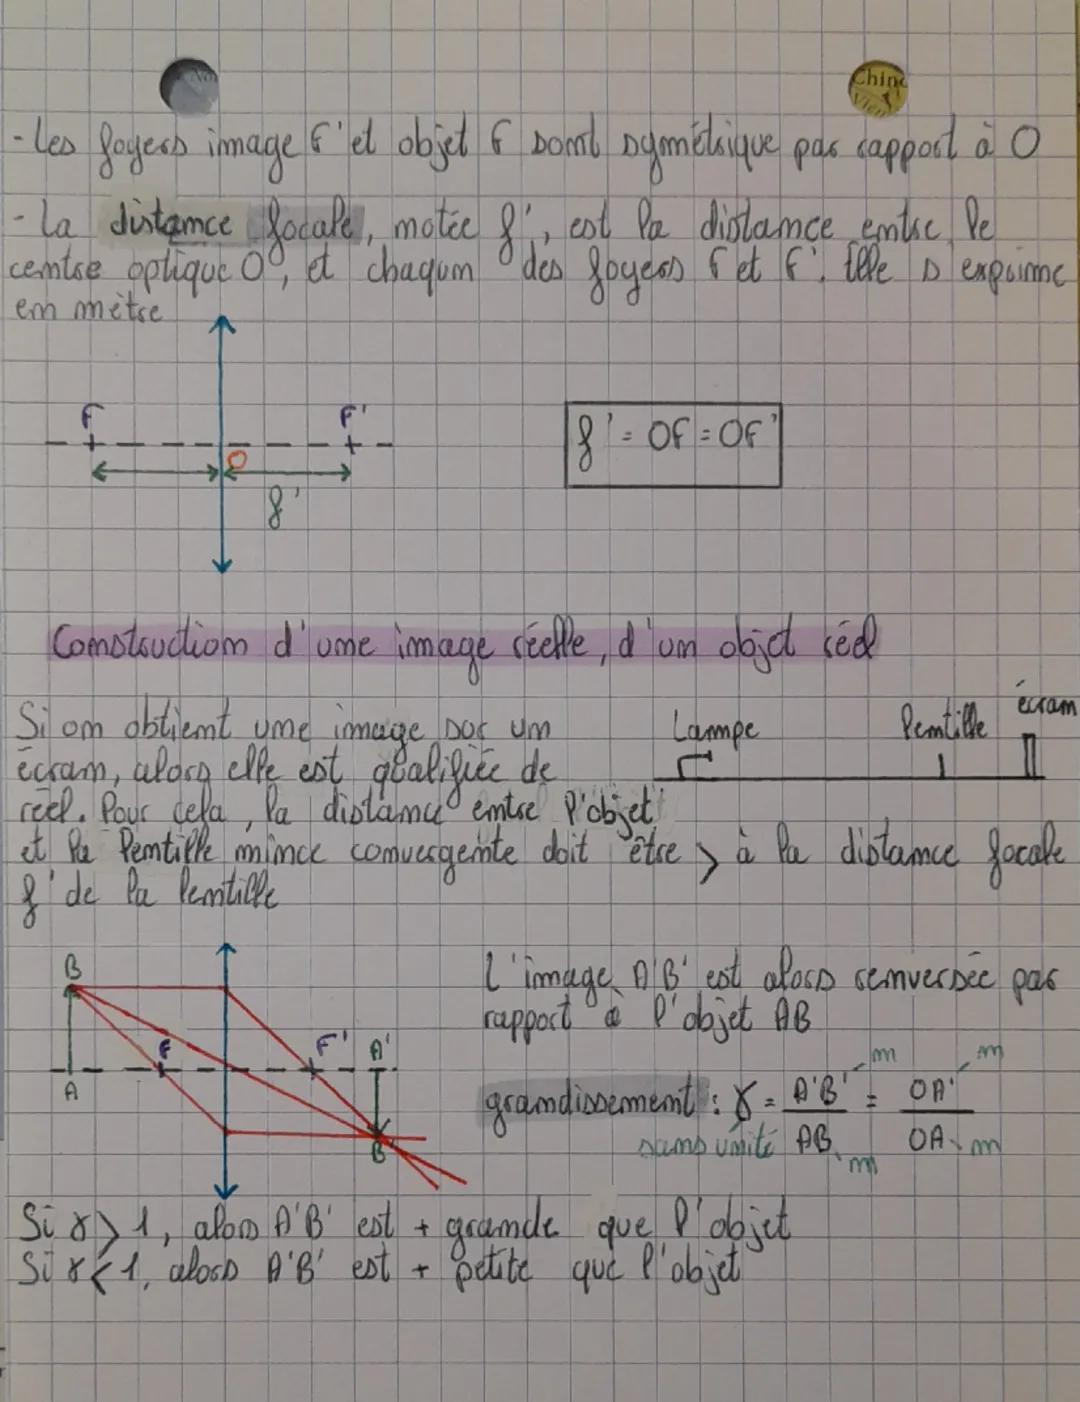 Chine
Vien
- Les foyers image F' et objet F sont symétrique par rapport à O
- La distance focale, notée f', est la distance entre le
centre optique O, et chaqun des foyers F et F'. Elle s'exprime
en mètre
F F'
O
f'
f' = OF = OF'
Construction d'une image réelle, d'un objet réel
Si on obtient une image sur un
écran, alors elle est qualifiée de
réel. Pour cela, la distance entre l'objet
et la lentille mince convergente doit être > à la distance focale
f' de la lentille
Lampe lentille écran
B
F F' A'
A
B'
L'image A'B' est alors renversée par
rapport à l'objet AB
grandissement : γ = A'B' / AB = OA' / OA
m m
sans unité m m
Si γ > 1, alors A'B' est + grande que l'objet
Si γ < 1, alors A'B' est + petite que l'objet